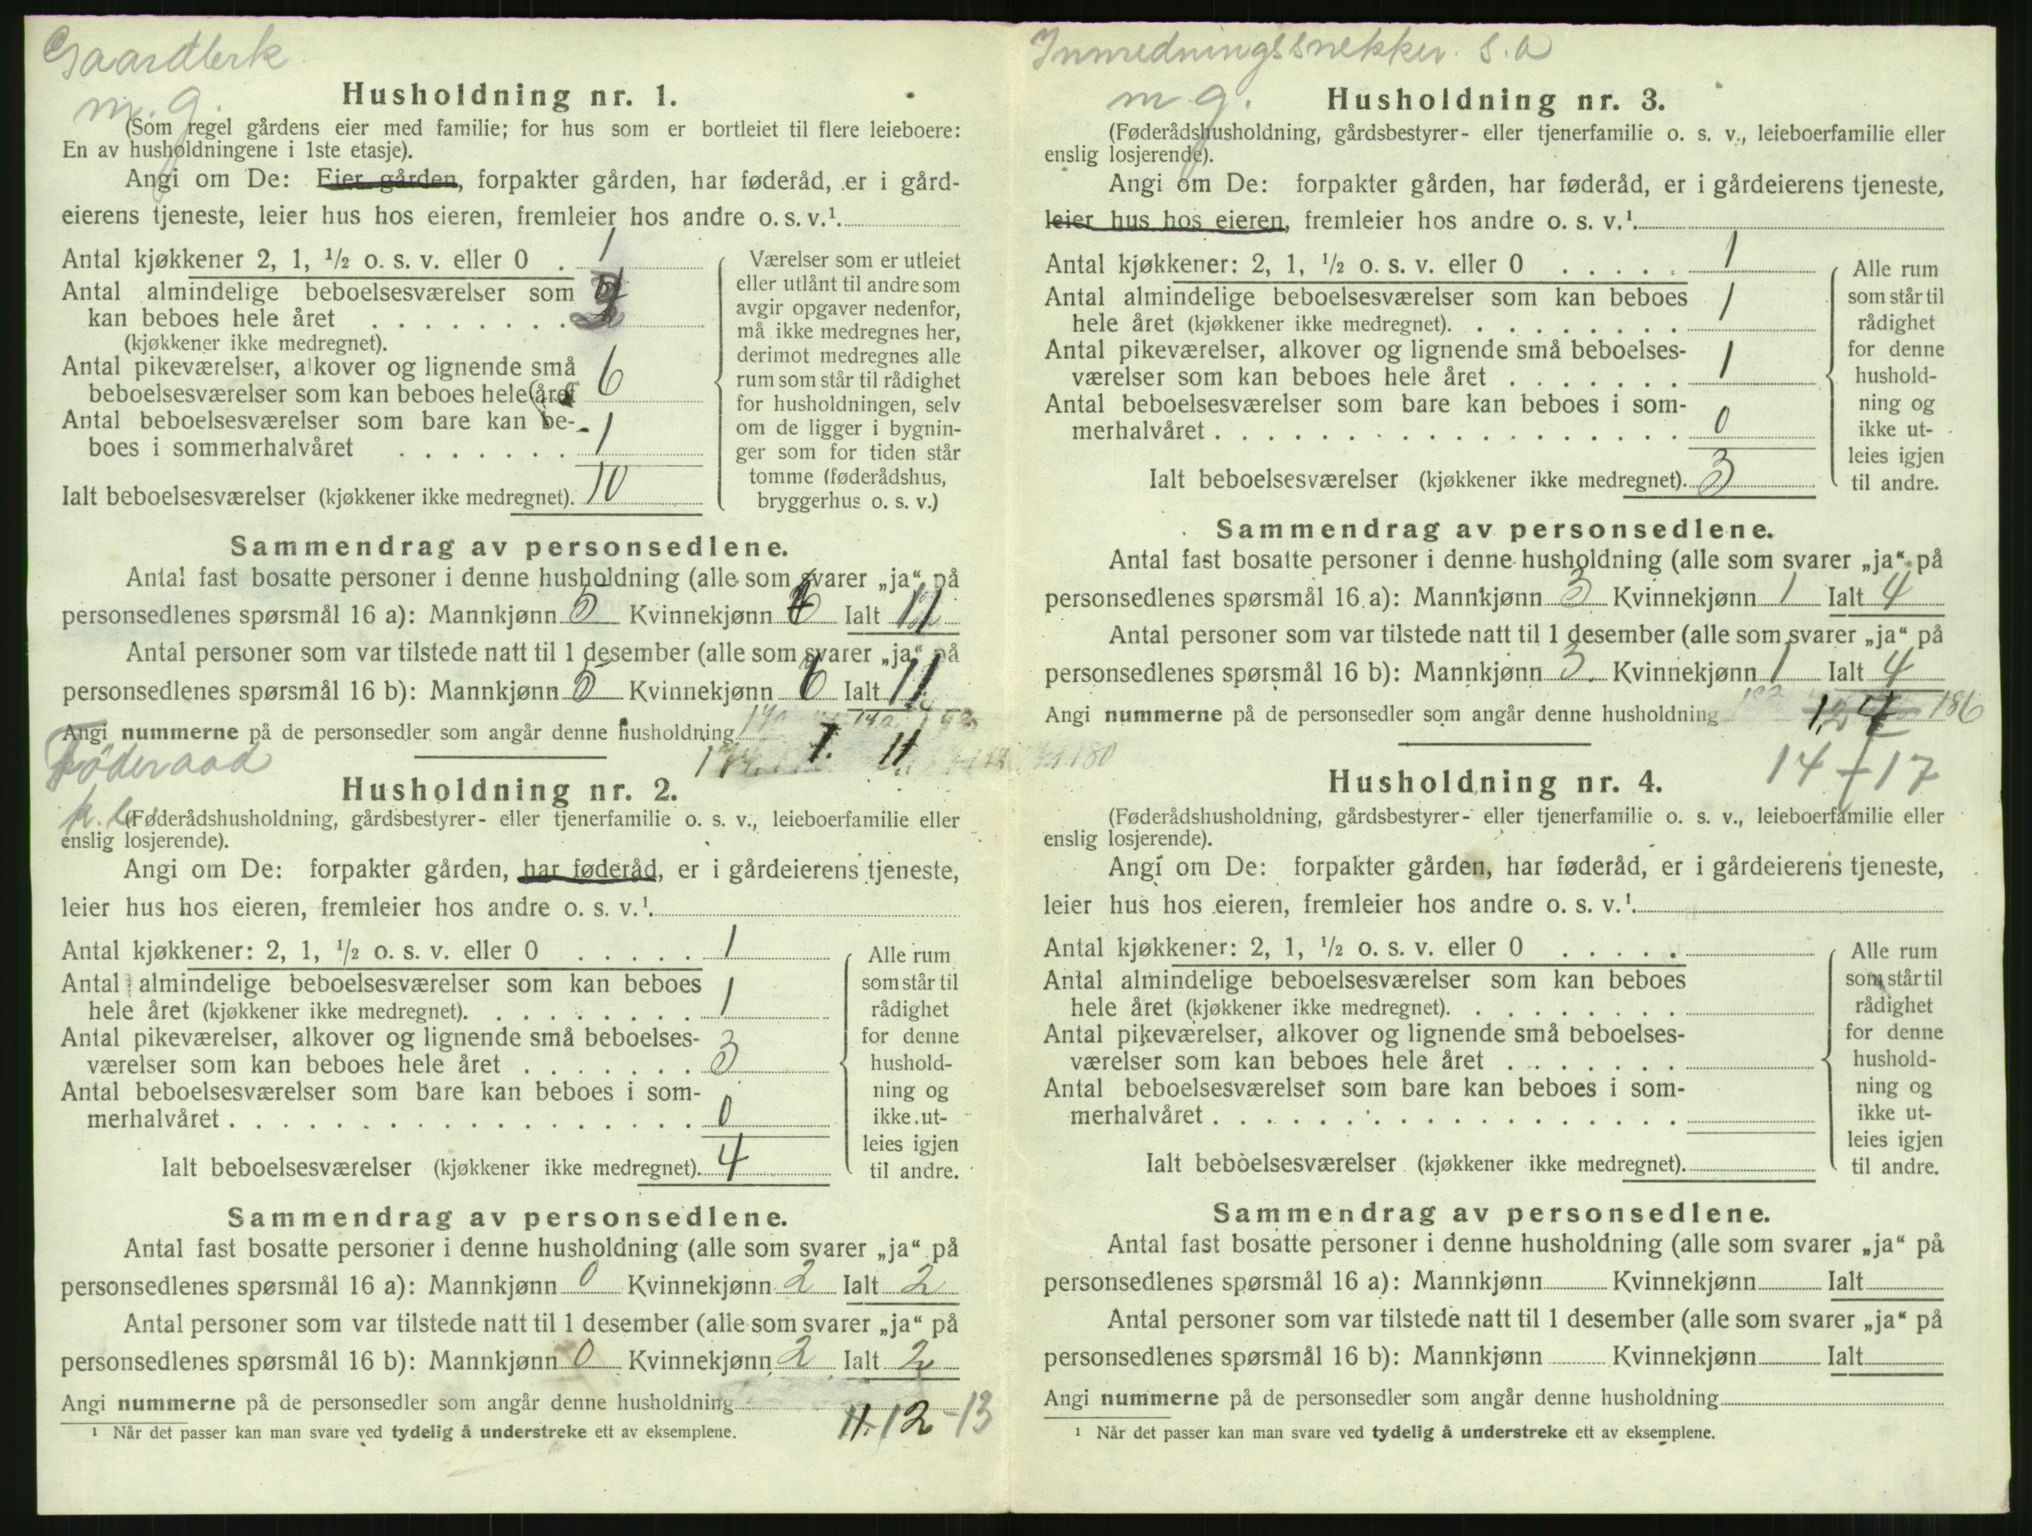 Gaardbrk
m. g.
Husholdning nr. 1.
(Som regel gårdens eier med familie; for hus som er bortleiet til flere leieboere:
En av husholdningene i 1ste etasje).
Angi om De: Eier gården, forpakter gården, har føderåd, er i gård-
eierens tjeneste, leier hus hos eieren, fremleier hos andre o. s. v.¹.
Antal kjøkkener 2, 1, ½ o. s. v. eller 0 . 1
Antal almindelige beboelsesværelser som
kan beboes hele året . . . . . . . .
(kjøkkener ikke medregnet).
Antal pikeværelser, alkover og lignende små
beboelsesværelser som kan beboes hele året 6
Antal beboelsesværelser som bare kan be-
boes i sommerhalvåret . . . . . . . 1
Ialt beboelsesværelser (kjøkkener ikke medregnet). 10
Værelser som er utleiet
eller utlånt til andre som
avgir opgaver nedenfor,
må ikke medregnes her,
derimot medregnes alle
rum som står til rådighet
for husholdningen, selv
om de ligger i bygnin-
ger som for tiden står
tomme (føderådshus,
bryggerhus o. s. v.)
Sammendrag av personsedlene.
Antal fast bosatte personer i denne husholdning (alle som svarer „ja“ på
personsedlenes spørsmål 16 a): Mannkjønn 5 Kvinnekjønn 6 Ialt 11
Antal personer som var tilstede natt til 1 desember (alle som svarer „ja“ på
personsedlenes spørsmål 16 b): Mannkjønn 5 Kvinnekjønn 6 Ialt 11
Angi nummerne på de personsedler som angår denne husholdning 1. 11
Føderaad
k. l.
Husholdning nr. 2.
(Føderådshusholdning, gårdsbestyrer- eller tjenerfamilie o. s. v., leieboerfamilie eller
enslig losjerende).
Angi om De: forpakter gården, har føderåd, er i gårdeierens tjeneste,
leier hus hos eieren, fremleier hos andre o. s. v.¹.
Antal kjøkkener: 2, 1, ½ o. s. v. eller 0 . . . . . 1
Antal almindelige beboelsesværelser som kan beboes
hele året (kjøkkener ikke medregnet). . . . . . . . . 1
Antal pikeværelser, alkover og lignende små beboelses-
værelser som kan beboes hele året . . . . . . . 3
Antal beboelsesværelser som bare kan beboes i som-
merhalvåret . . . . . . . . . . . . . . . . . . 0
Ialt beboelsesværelser (kjøkkener ikke medregnet). 4
Alle rum
som står til
rådighet
for denne
hushold-
ning og
ikke ut-
leies igjen
til andre.
Sammendrag av personsedlene.
Antal fast bosatte personer i denne husholdning (alle som svarer „ja“ på
personsedlenes spørsmål 16 a): Mannkjønn 0 Kvinnekjønn 2 Ialt 2
Antal personer som var tilstede natt til 1 desember (alle som svarer „ja“ på
personsedlenes spørsmål 16 b): Mannkjønn 0 Kvinnekjønn 2 Ialt 2
Angi nummerne på de personsedler som angår denne husholdning
12-13
¹ Når det passer kan man svare ved tydelig å understreke ett av eksemplene.
Innredningssnekker. s. a
m g.
Husholdning nr. 3.
(Føderådshusholdning, gårdsbestyrer- eller tjenerfamilie o. s. v., leieboerfamilie eller
enslig losjerende).
Angi om De: forpakter gården, har føderåd, er i gårdeierens tjeneste,
leier hus hos eieren, fremleier hos andre o. s. v.¹.
Antal kjøkkener: 2, 1, ½ o. s. v. eller 0 . . . . . 1
Antal almindelige beboelsesværelser som kan beboes
hele året (kjøkkener ikke medregnet). . . . . . . . . 1
Antal pikeværelser, alkover og lignende små beboelses-
værelser som kan beboes hele året . . . . . . . 1
Antal beboelsesværelser som bare kan beboes i som-
merhalvåret . . . . . . . . . . . . . . . . . . 0
Ialt beboelsesværelser (kjøkkener ikke medregnet). 3
Alle rum
som står til
rådighet
for denne
hushold-
ning og
ikke ut-
leies igjen
til andre.
Sammendrag av personsedlene.
Antal fast bosatte personer i denne husholdning (alle som svarer „ja“ på
personsedlenes spørsmål 16 a): Mannkjønn 3 Kvinnekjønn 1 Ialt 4
Antal personer som var tilstede natt til 1 desember (alle som svarer „ja“ på
personsedlenes spørsmål 16 b): Mannkjønn 3 Kvinnekjønn 1 Ialt 4
Angi nummerne på de personsedler som angår denne husholdning 186
14-17
Husholdning nr. 4.
(Føderådshusholdning, gårdsbestyrer- eller tjenerfamilie o. s. v., leieboerfamilie eller
enslig losjerende).
Angi om De: forpakter gården, har føderåd, er i gårdeierens tjeneste,
leier hus hos eieren, fremleier hos andre o. s. v.¹.
Antal kjøkkener: 2, 1, ½ o. s. v. eller 0 . . . . .
Antal almindelige beboelsesværelser som kan beboes
hele året (kjøkkener ikke medregnet). . . . . . . . .
Antal pikeværelser, alkover og lignende små beboelses-
værelser som kan beboes hele året . . . . . . .
Antal beboelsesværelser som bare kan beboes i som-
merhalvåret . . . . . . . . . . . . . . . . . .
Ialt beboelsesværelser (kjøkkener ikke medregnet).
Alle rum
som står til
rådighet
for denne
hushold-
ning og
ikke ut-
leies igjen
til andre.
Sammendrag av personsedlene.
Antal fast bosatte personer i denne husholdning (alle som svarer „ja“ på
personsedlenes spørsmål 16 a): Mannkjønn Kvinnekjønn Ialt
Antal personer som var tilstede natt til 1 desember (alle som svarer „ja“ på
personsedlenes spørsmål 16 b): Mannkjønn Kvinnekjønn Ialt
Angi nummerne på de personsedler som angår denne husholdning
¹ Når det passer kan man svare ved tydelig å understreke ett av eksemplene.